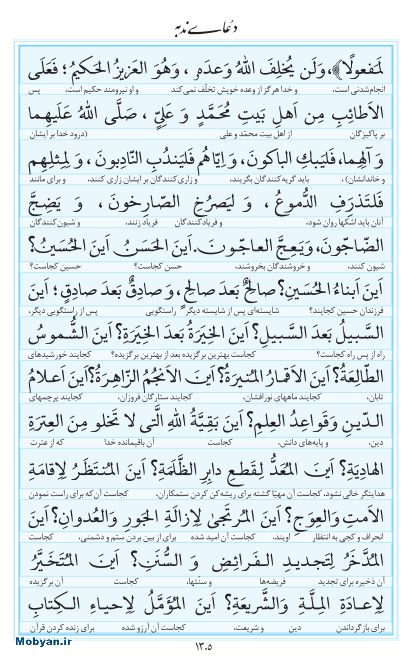 دعای ندبه
لَمَفعولًا﴾، وَلَن یُخلِفَ اللهُ وَعدَهُ، وَهُوَ العَزیزُ الحَکیمُ؛ فَعَلَی
انجام‌شدنی است، و خدا هرگز از وعده خویش تخلّف نمی‌کند و او نیرومند حکیم است، پس
الاَطائِبِ مِن اَهلِ بَیتِ مُحَمَّدٍ وَ عَلِیٍّ، صَلَّی اللهُ عَلَیهِما
بر پاکیزگان از اهل بیت محمّد و علی (درود خدا بر ایشان
وَ آلِهِما، فَلیَبکِ الباکونَ، وَ اِیّاهُم فَلیَندُبِ النّادِبونَ، وَ لِمِثلِهِم
و خاندانشان)، باید گریه‌کنندگان بگریند، و زاری‌کنندگان بر ایشان زاری کنند، و برای مانند
فَلتَذرَفِ الدُّموعُ، وَ لیَصرُخِ الصّارِخونَ، وَ یَضِجَّ
آنان باید اشکها روان شود، و فریادکنندگان فریاد زنند، و شیون‌کنندگان
الضّاجّونَ، وَیَعِجَّ العاجّونَ. اَینَ الحَسَنُ اَینَ الحُسَینُ؟
شیون کنند، و خروشندگان بخروشند، حسن کجاست؟ حسین کجاست؟
اَینَ اَبناءُ الحُسَینِ؟ صالِحٌ بَعدَ صالِحٍ، وَ صادِقٌ بَعدَ صادِقٍ؛ اَینَ
فرزندان حسین کجایند؟ شایسته‌ای پس از شایسته دیگر راستگویی پس از راستگویی دیگر،
السَّبیلُ بَعدَ السَّبیلِ؟ اَینَ الخِیَرَةُ بَعدَ الخِیَرَةِ؟ اَینَ الشُّموسُ
راه از پس راه کجاست؟ کجاست بهترین برگزیده بعد از بهترین برگزیده؟ کجایند خورشیدهای
الطّالِعَةُ؟ اَینَ الاَقمارُ المُنیرَةُ؟ اَینَ الاَنجُمُ الزّاهِرَةُ؟ اَینَ اَعلامُ
تابان، کجایند ماههای نورافشان، کجایند ستارگان فروزان، کجایند پرچمهای
الدّینِ وَ قَواعِدُ العِلمِ؟ اَینَ بَقِیَّةُ اللهِ الَّتی لا تَخلو مِنَ العِترَةِ
دین، و پایه‌های دانش، کجاست آن باقیمانده خدا که از عترت
الهادِیَةِ؟ اَینَ المُعَدُّ لِقَطعِ دابِرِ الظَّلَمَةِ؟ اَینَ المُنتَظَرُ لِاِقامَةِ
هدایتگر خالی نشود، کجاست آن مهیّا گشته برای ریشه‌کن کردن ستمکاران، کجاست آن که برای راست نمودن
الاَمتِ وَالعِوَجِ؟ اَینَ المُرتَجیٰ لِاِزالَةِ الجَورِ وَالعُدوانِ؟ اَینَ
انحراف و کجی به انتظار اویند، کجاست آن امید شده برای از بین بردن ستم و دشمنی، کجاست
المُدَّخَرُ لِتَجدیدِ الفَرائِضِ وَ السُّنَنِ؟ اَینَ المُتَخَیَّرُ
آن ذخیره برای تجدید فریضه‌ها و سنّتها، کجاست آن برگزیده
لِاِعادَةِ المِلَّةِ وَالشَّریعَةِ؟ اَینَ المُؤَمَّلُ لِاِحیاءِ الکِتابِ
برای بازگرداندن دین و شریعت، کجاست آن آرزو شده برای زنده کردن قرآن
۱۳۰۵
Mobyan.ir